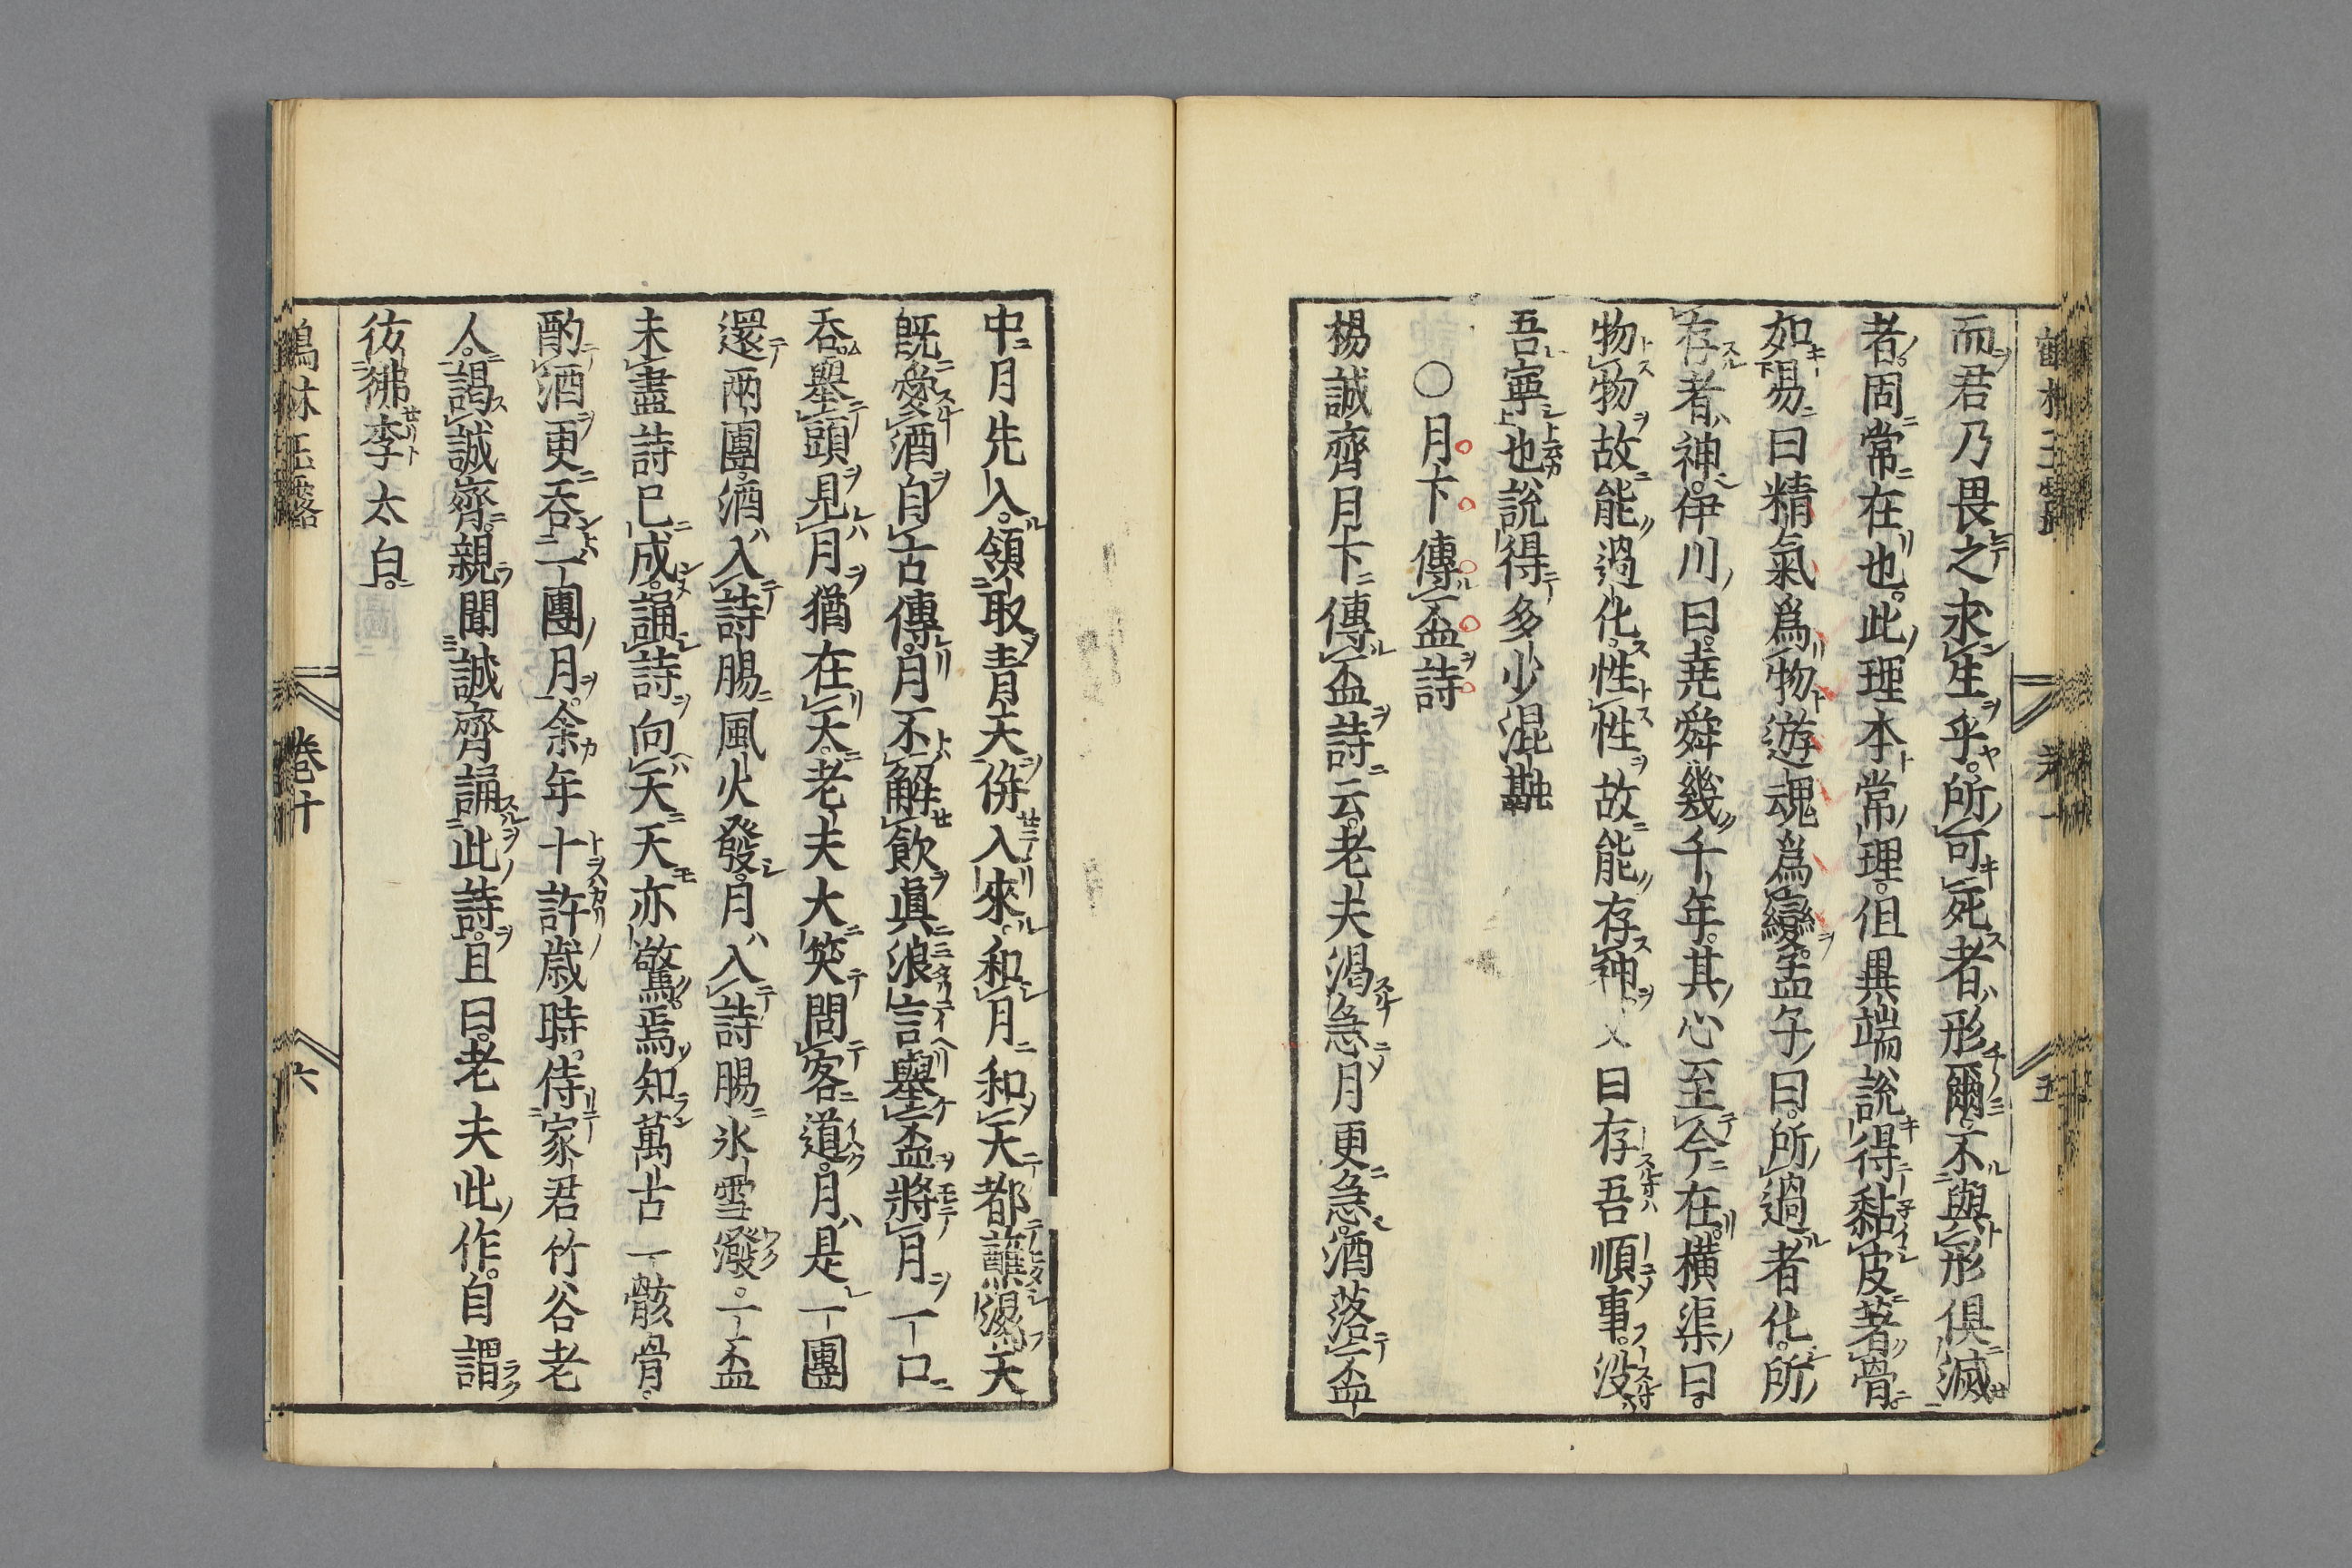 而君乃畏之求生乎。所可死者形爾。不與形俱滅
者。固常在也。此理本常理。但異端說得黏皮著骨。
如易曰精氣爲物遊魂爲變。孟子曰。所過者化。所
存者神。伊川曰。堯舜幾千年。其心至今在。橫渠曰。
物物故能過化。性性故能存神又曰存吾順事。沒
吾寧也說得多少混融
○月下傳盃詩
楊誠齊月下傳盃詩云。老夫渴急月更急。酒落盃
中月先入。領取青天併入來。和月和天都蘸濕天
既愛酒自古傳。月不解飮眞浪言舉盃將月一口
吞。舉頭見月猶在天。老夫大笑問客道。月是一團
還兩團。酒入詩腸風火發。月入詩腸氷雪潑。一盃
未盡詩已成。誦詩向天天亦驚。焉知萬古一骸骨。
酌酒更吞一團月。余年十許歲時。侍家君竹谷老
人。謁誠齊。親聞誠齊誦此詩。且曰。老夫此作。自謂
彷彿李太白。
鶴林玉露
卷十
六